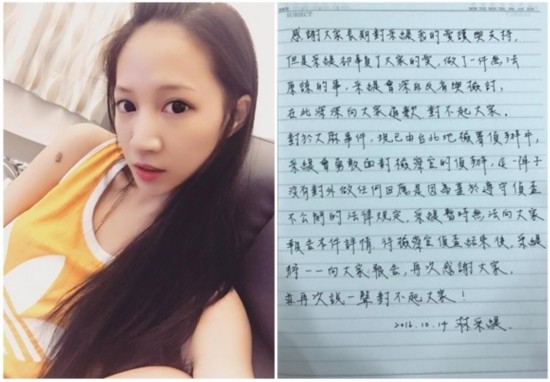 SUBJECT
感謝大家長期對采緹我的愛護與支持,
但是采緹卻辜負了大家的愛,做了一件無法
原諒的事,采緹會深自反省與檢討,
在此深深向大家道歉 對不起大家。
對於大麻事件,現已由台北地檢署偵辦中,
采緹會勇敢面對檢察官的偵辦,這一陣子
沒有對外做任何回應是因為基於遵守偵查
不公開的法律規定,采緹暫時無法向大家
報告本件詳情,待檢察官偵查結束後,采緹
將一一向大家報告,再次感謝大家,
並再次說一聲對不起大家!
2016.10.14 莊采緹